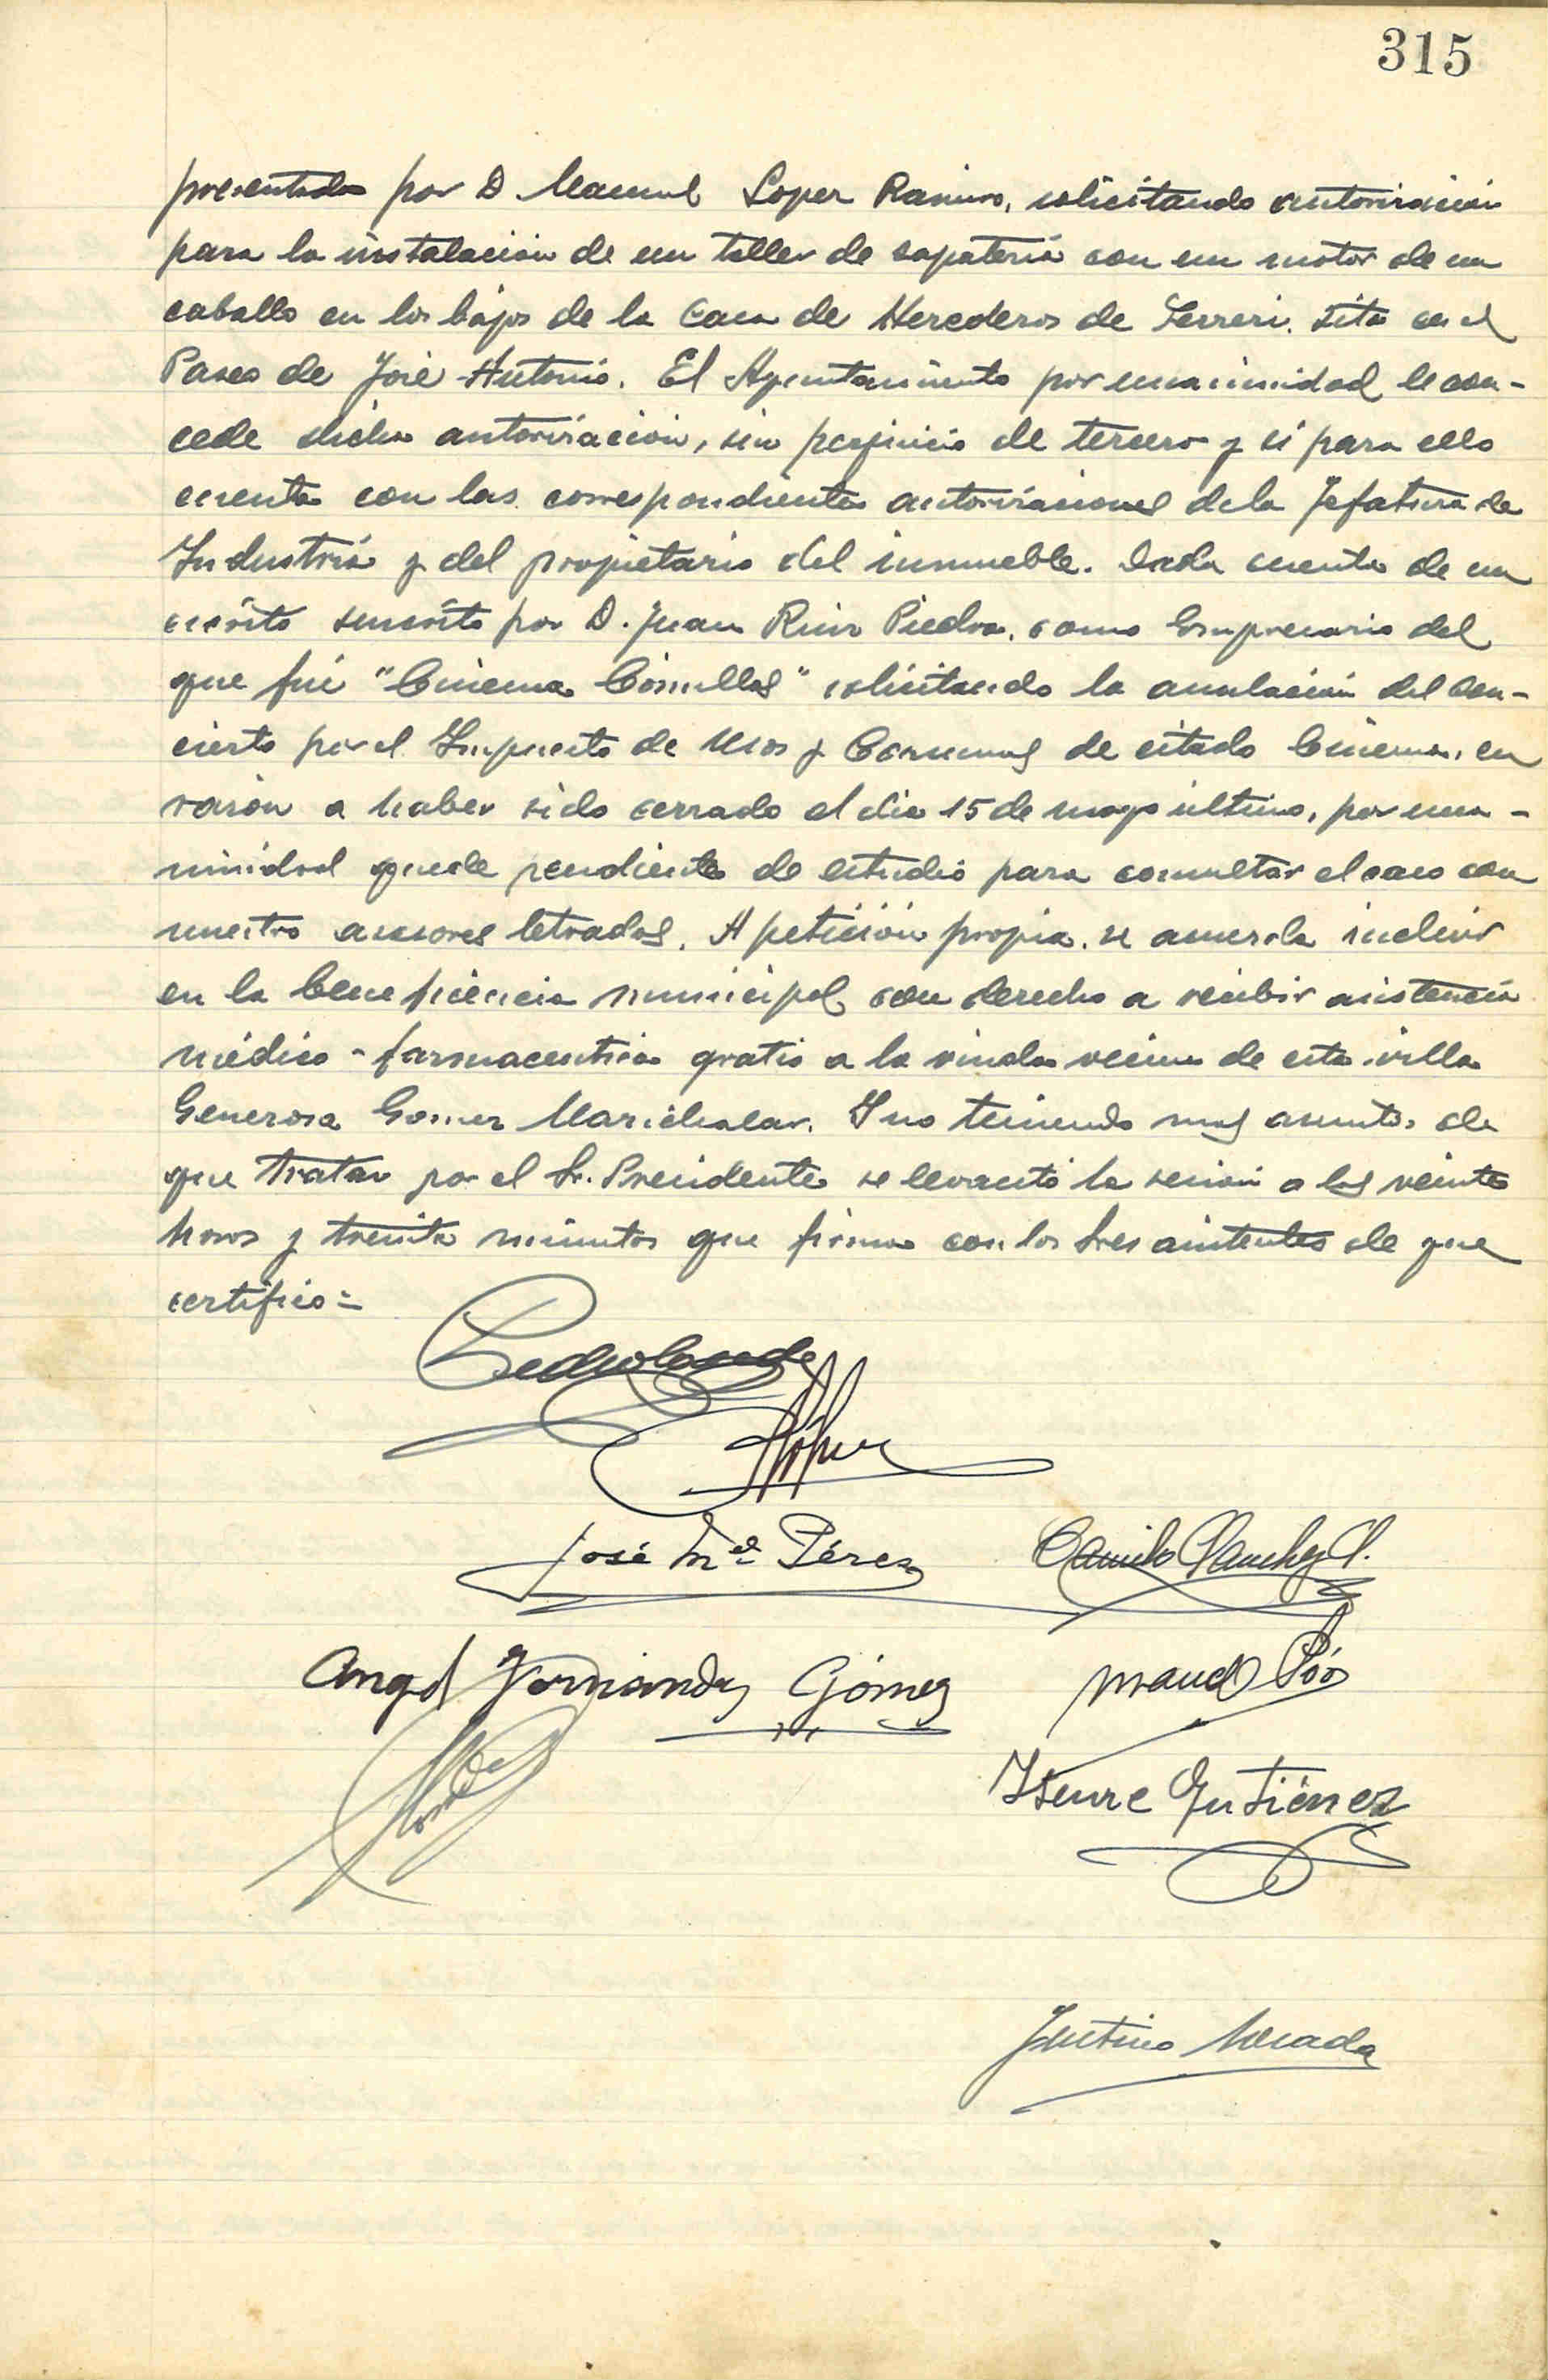 315
presentada por D Manuel Lopez Ramiro, solicitando autorización
para la instalación de un taller de zapatería con un motor de un
caballo en los bajos de la casa de Herederos de Ferreri, sita en el
Paseo de José Antonio. El Ayuntamiento por unanimidad le con-
cede dicha autorización, sin perjuicio de tercero y si para ello
cuenta con las correspondientes autorizaciones de la Jefatura de
Industria y del propietario del inmueble. Dada cuenta de un
escrito suscrito por D. Juan Ruiz Piedra, como Empresario del
que fué "Cinema Comillas" solicitando la anulación del Con-
cierto por el Impuesto de Usos y Consumos de citado Cinema, en
razón a haber sido cerrado el dia 15 de mayo último, por una-
nimidad quede pendiente de estudio para consultar el caso con
nuestro asesores letrados. A petición propia, se acuerda incluir
en la beneficiencia municipal con derecho a recibir asistencia
médico-farmaceutica gratis a la viuda vecina de esta villa
Generosa Gomez Marichalar. Y no teniendo mas asuntos de
que tratar por el Sr. Presidente se levantó la sesión a las veinte
horos y treinta minutos que firma con los Sres asistentes de que
certifico=
José Mª Pérez Camilo Sanchez
Angel Fernandez Gómez Manuel
Gutiérrez